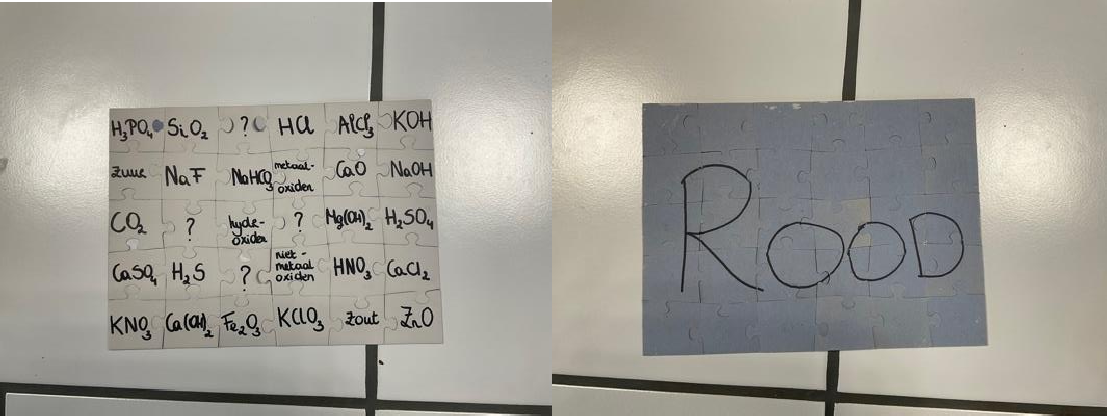 H₃PO₄ SiO₂ ? HCl AlCl₃ KOH
zuur NaF NaHCO₃ metaal-oxiden CaO NaOH
CO₂ ? hydr-oxiden ? Mg(OH)₂ H₂SO₄
CaSO₄ H₂S ? niet-metaal oxiden HNO₃ CaCl₂
KNO₃ Ca(OH)₂ Fe₂O₃ KClO₃ zout ZnO
ROOD